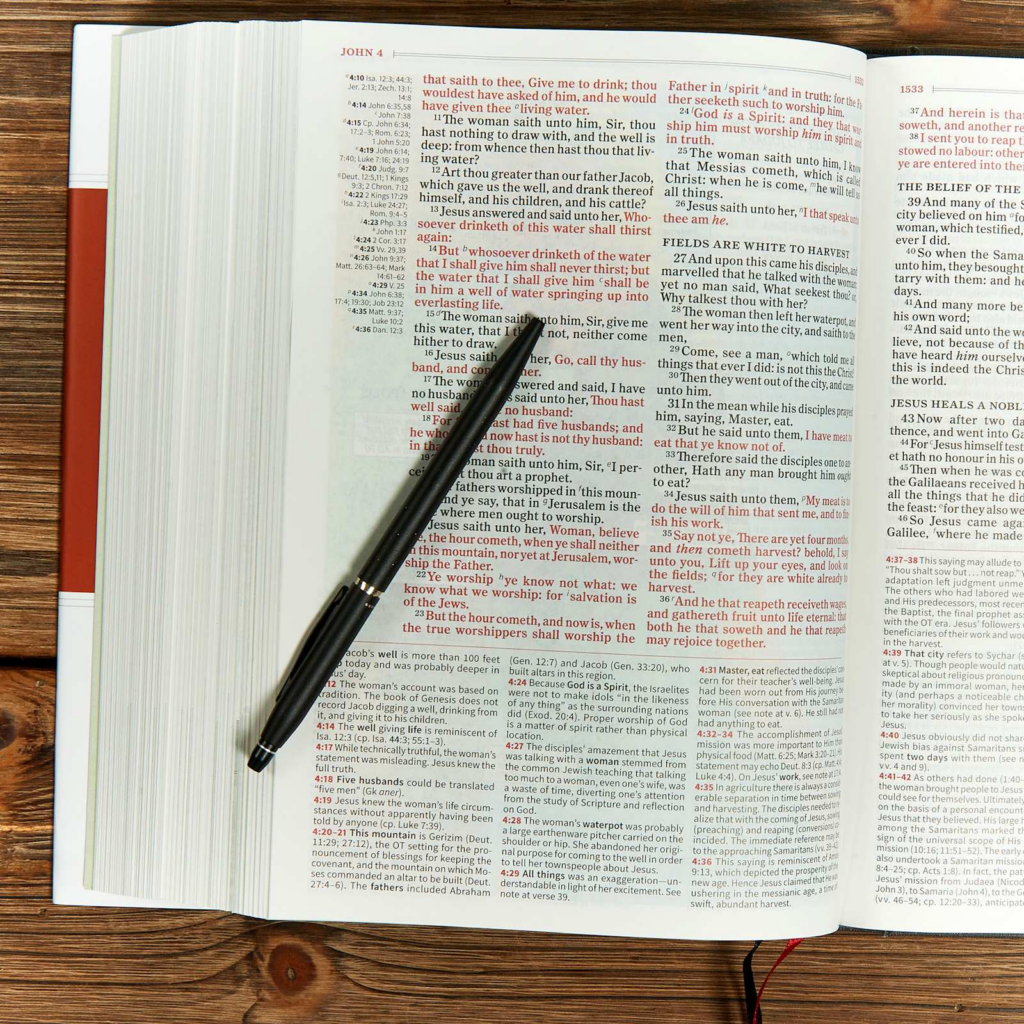 JOHN 4
4:10 Isa. 12:3; 44:3;
Jer. 2:13; Zech. 13:1;
14:8
4:14 John 6:35,58
John 7:38
4:15 Cp. John 6:34;
17:2–3; Rom. 6:23;
1 John 5:20
4:19 John 6:14;
7:40; Luke 7:16; 24:19
4:20 Judg. 9:7
Deut. 12:5,11; 1 Kings
9:3; 2 Chron. 7:12
4:22 2 Kings 17:29
Isa. 2:3; Luke 24:27;
Rom. 9:4–5
4:23 Php. 3:3
John 1:17
4:24 2 Cor. 3:17
4:25 Vv. 29,39
4:26 John 9:37;
Matt. 26:63–64; Mark
14:61–62
4:29 V. 25
4:34 John 6:38;
17:4; 19:30; Job 23:12
4:35 Matt. 9:37;
Luke 10:2
4:36 Dan. 12:3
that saith to thee, Give me to drink; thou
wouldest have asked of him, and he would
have given thee living water.
11 The woman saith unto him, Sir, thou
hast nothing to draw with, and the well is
deep: from whence then hast thou that liv-
ing water?
12 Art thou greater than our father Jacob,
which gave us the well, and drank thereof
himself, and his children, and his cattle?
13 Jesus answered and said unto her, Who-
soever drinketh of this water shall thirst
again:
14 But b whosoever drinketh of the water
that I shall give him shall never thirst; but
the water that I shall give him c shall be
in him a well of water springing up into
everlasting life.
15 d The woman saith unto him, Sir, give me
this water, that I not, neither come
hither to draw.
16 Jesus saith her, Go, call thy hus-
band, and her.
17 The answered and said, I have
no husband. said unto her, Thou hast
well said, no husband:
18 For hast had five husbands; and
he who now hast is not thy husband:
in that thou truly.
19 woman saith unto him, Sir, e I per-
thou art a prophet.
fathers worshipped in f this moun-
and ye say, that in g Jerusalem is the
where men ought to worship.
Jesus saith unto her, Woman, believe
the hour cometh, when ye shall neither
this mountain, nor yet at Jerusalem, wor-
ship the Father.
22 Ye worship h ye know not what: we
know what we worship: for i salvation is
of the Jews.
23 But the hour cometh, and now is, when
the true worshippers shall worship the
Father in j spirit k and in truth: for the
ther seeketh such to worship him.
24 l God is a Spirit: and they that
ship him must worship him in spirit and
in truth.
25 The woman saith unto him, I know
that Messias cometh, which is called
Christ: when he is come, m he will tell
all things.
26 Jesus saith unto her, n I that speak unto
thee am he.
FIELDS ARE WHITE TO HARVEST
27 And upon this came his disciples, and
marvelled that he talked with the woman:
yet no man said, What seekest thou? or,
Why talkest thou with her?
28 The woman then left her waterpot, and
went her way into the city, and saith to the
men,
29 Come, see a man, o which told me all
things that ever I did: is not this the Christ?
30 Then they went out of the city, and came
unto him.
31 In the mean while his disciples prayed
him, saying, Master, eat.
32 But he said unto them, I have meat to
eat that ye know not of.
33 Therefore said the disciples one to an-
other, Hath any man brought him ought
to eat?
34 Jesus saith unto them, p My meat is to
do the will of him that sent me, and to fin-
ish his work.
35 Say not ye, There are yet four months,
and then cometh harvest? behold, I say
unto you, Lift up your eyes, and look on
the fields; q for they are white already to
harvest.
36 r And he that reapeth receiveth wages,
and gathereth fruit unto life eternal: that
both he that soweth and he that reapeth
may rejoice together.
Jacob's well is more than 100 feet
today and was probably deeper in
day.
12 The woman's account was based on
tradition. The book of Genesis does not
record Jacob digging a well, drinking from
it, and giving it to his children.
4:14 The well giving life is reminiscent of
Isa. 12:3 (cp. Isa. 44:3; 55:1–3).
4:17 While technically truthful, the woman's
statement was misleading. Jesus knew the
full truth.
4:18 Five husbands could be translated
"five men" (Gk aner).
4:19 Jesus knew the woman's life circum-
stances without apparently having been
told by anyone (cp. Luke 7:39).
4:20–21 This mountain is Gerizim (Deut.
11:29; 27:12), the OT setting for the pro-
nouncement of blessings for keeping the
covenant, and the mountain on which Mo-
ses commanded an altar to be built (Deut.
27:4–6). The fathers included Abraham
(Gen. 12:7) and Jacob (Gen. 33:20), who
built altars in this region.
4:24 Because God is a Spirit, the Israelites
were not to make idols "in the likeness
of any thing" as the surrounding nations
did (Exod. 20:4). Proper worship of God
is a matter of spirit rather than physical
location.
4:27 The disciples' amazement that Jesus
was talking with a woman stemmed from
the common Jewish teaching that talking
too much to a woman, even one's wife, was
a waste of time, diverting one's attention
from the study of Scripture and reflection
on God.
4:28 The woman's waterpot was probably
a large earthenware pitcher carried on the
shoulder or hip. She abandoned her origi-
nal purpose for coming to the well in order
to tell her townspeople about Jesus.
4:29 All things was an exaggeration—un-
derstandable in light of her excitement. See
note at verse 39.
4:31 Master, eat reflected the disciples' con-
cern for their teacher's well-being. Jesus
had been worn out from His journey be-
fore His conversation with the Samaritan
woman (see note at v. 6). He still had not
had anything to eat.
4:32–34 The accomplishment of Jesus'
mission was more important to Him than
physical food (Matt. 6:25; Mark 3:20–21). His
statement may echo Deut. 8:3 (cp. Matt. 4:4;
Luke 4:4). On Jesus' work, see note at 17:4.
4:35 In agriculture there is always a consid-
erable separation in time between sowing
and harvesting. The disciples needed to re-
alize that with the coming of Jesus, sowing
(preaching) and reaping (conversions) co-
incided. The immediate reference may be
to the approaching Samaritans (vv. 39–42).
4:36 This saying is reminiscent of Amos
9:13, which depicted the prosperity of the
new age. Hence Jesus claimed that He was
ushering in the messianic age, a time of
swift, abundant harvest.
1533
37 And herein is that
soweth, and another re
38 I sent you to reap
stowed no labour: other
ye are entered into their
THE BELIEF OF THE
39 And many of the S
city believed on him for
woman, which testified,
ever I did.
40 So when the Sama
unto him, they besought
tarry with them: and he
days.
41 And many more be
his own word;
42 And said unto the wo
lieve, not because of th
have heard him ourselve
this is indeed the Chris
the world.
JESUS HEALS A NOBL
43 Now after two da
thence, and went into Ga
44 For Jesus himself test
et hath no honour in his o
45 Then when he was co
the Galilaeans received h
all the things that he did
the feast: for they also we
46 So Jesus came aga
Galilee, where he made
4:37–38 This saying may allude to
"Thou shalt sow but . . . not reap."
adaptation left judgment unme
The others who had labored we
and His predecessors, most rece
the Baptist, the final prophet as
with the OT era. Jesus' followers
beneficiaries of their work and wou
in the harvest.
4:39 That city refers to Sychar (s
at v. 5). Though people would natu
skeptical about religious pronounc
made by an immoral woman, he
ity (and perhaps a noticeable ch
her morality) convinced her towns
to take her seriously as she spok
Jesus.
4:40 Jesus obviously did not shar
Jewish bias against Samaritans s
spent two days with them (see n
vv. 4 and 9).
4:41–42 As others had done (1:40–
the woman brought people to Jesus
could see for themselves. Ultimately
on the basis of a personal encount
Jesus that they believed. His large h
among the Samaritans marked th
sign of the universal scope of His
mission (10:16; 11:51–52). The early
also undertook a Samaritan missio
8:4–25; cp. Acts 1:8). In fact, the pat
Jesus' mission from Judaea (Nicod
John 3), to Samaria (John 4), to the Ge
(vv. 46–54; cp. 12:20–33), anticipate